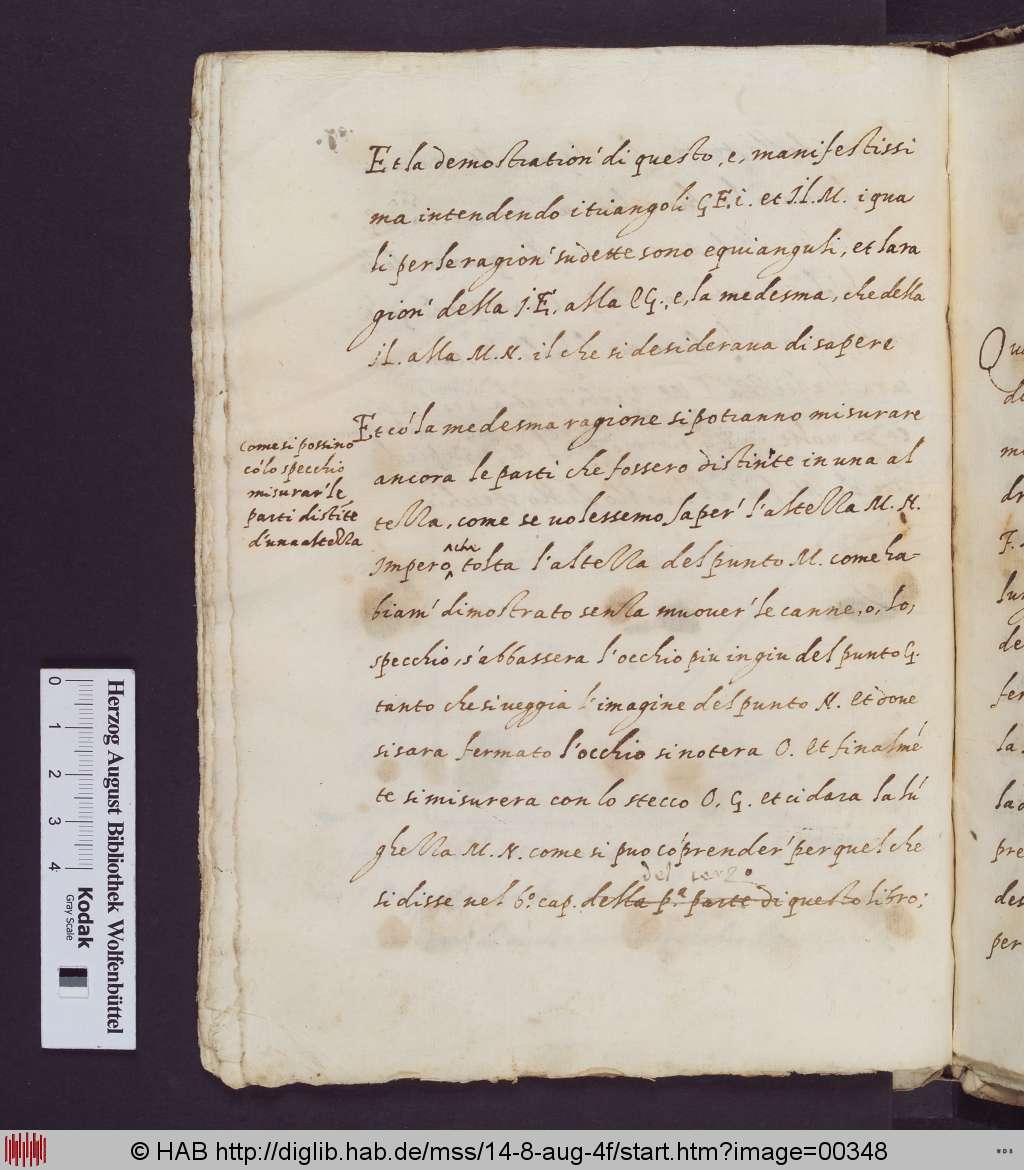 Et la demostration' di questo, e, manifestissi
ma intendendo i triangoli G E. i. et I. l. M. i qua
li per le ragion' sudette sono equianguli, et la ra
gion' della I. E. alla E G., e, la medesma, che della
il. alla M. N. il che si desideraua di sapere
Et có la medesma ragione si potranno misurare
ancora le parti che fossero distinte in una al
tezza, come se uolessemo saper' l'altezza M. N.
Impero che tolta l'altezza del punto M. come ha-
biam' dimostrato senza muouer' le canne, o, lo,
specchio, s'abbassera l'occhio piu in giu del punto G.
tanto che si ueggia l'imagine del punto N. et doue
si sara fermato l'occhio si notera O. et finalmé
te si misurera con lo stecco O. G. et ci dara la lú
ghezza M. N. come si puo cóprender' per quel che
del terzo
si disse nel 6.º cap. della p.ª parte di questo libro;
Come si possino
có lo specchio
misurar' le
parti distíte
d'una altezza
Qua
di
me
dr
F.
lun
de
fer
la
la d
pre
des
per
0 1 2 3 4
Herzog August Bibliothek Wolfenbüttel
Kodak
Gray Scale
© HAB http://diglib.hab.de/mss/14-8-aug-4f/start.htm?image=00348